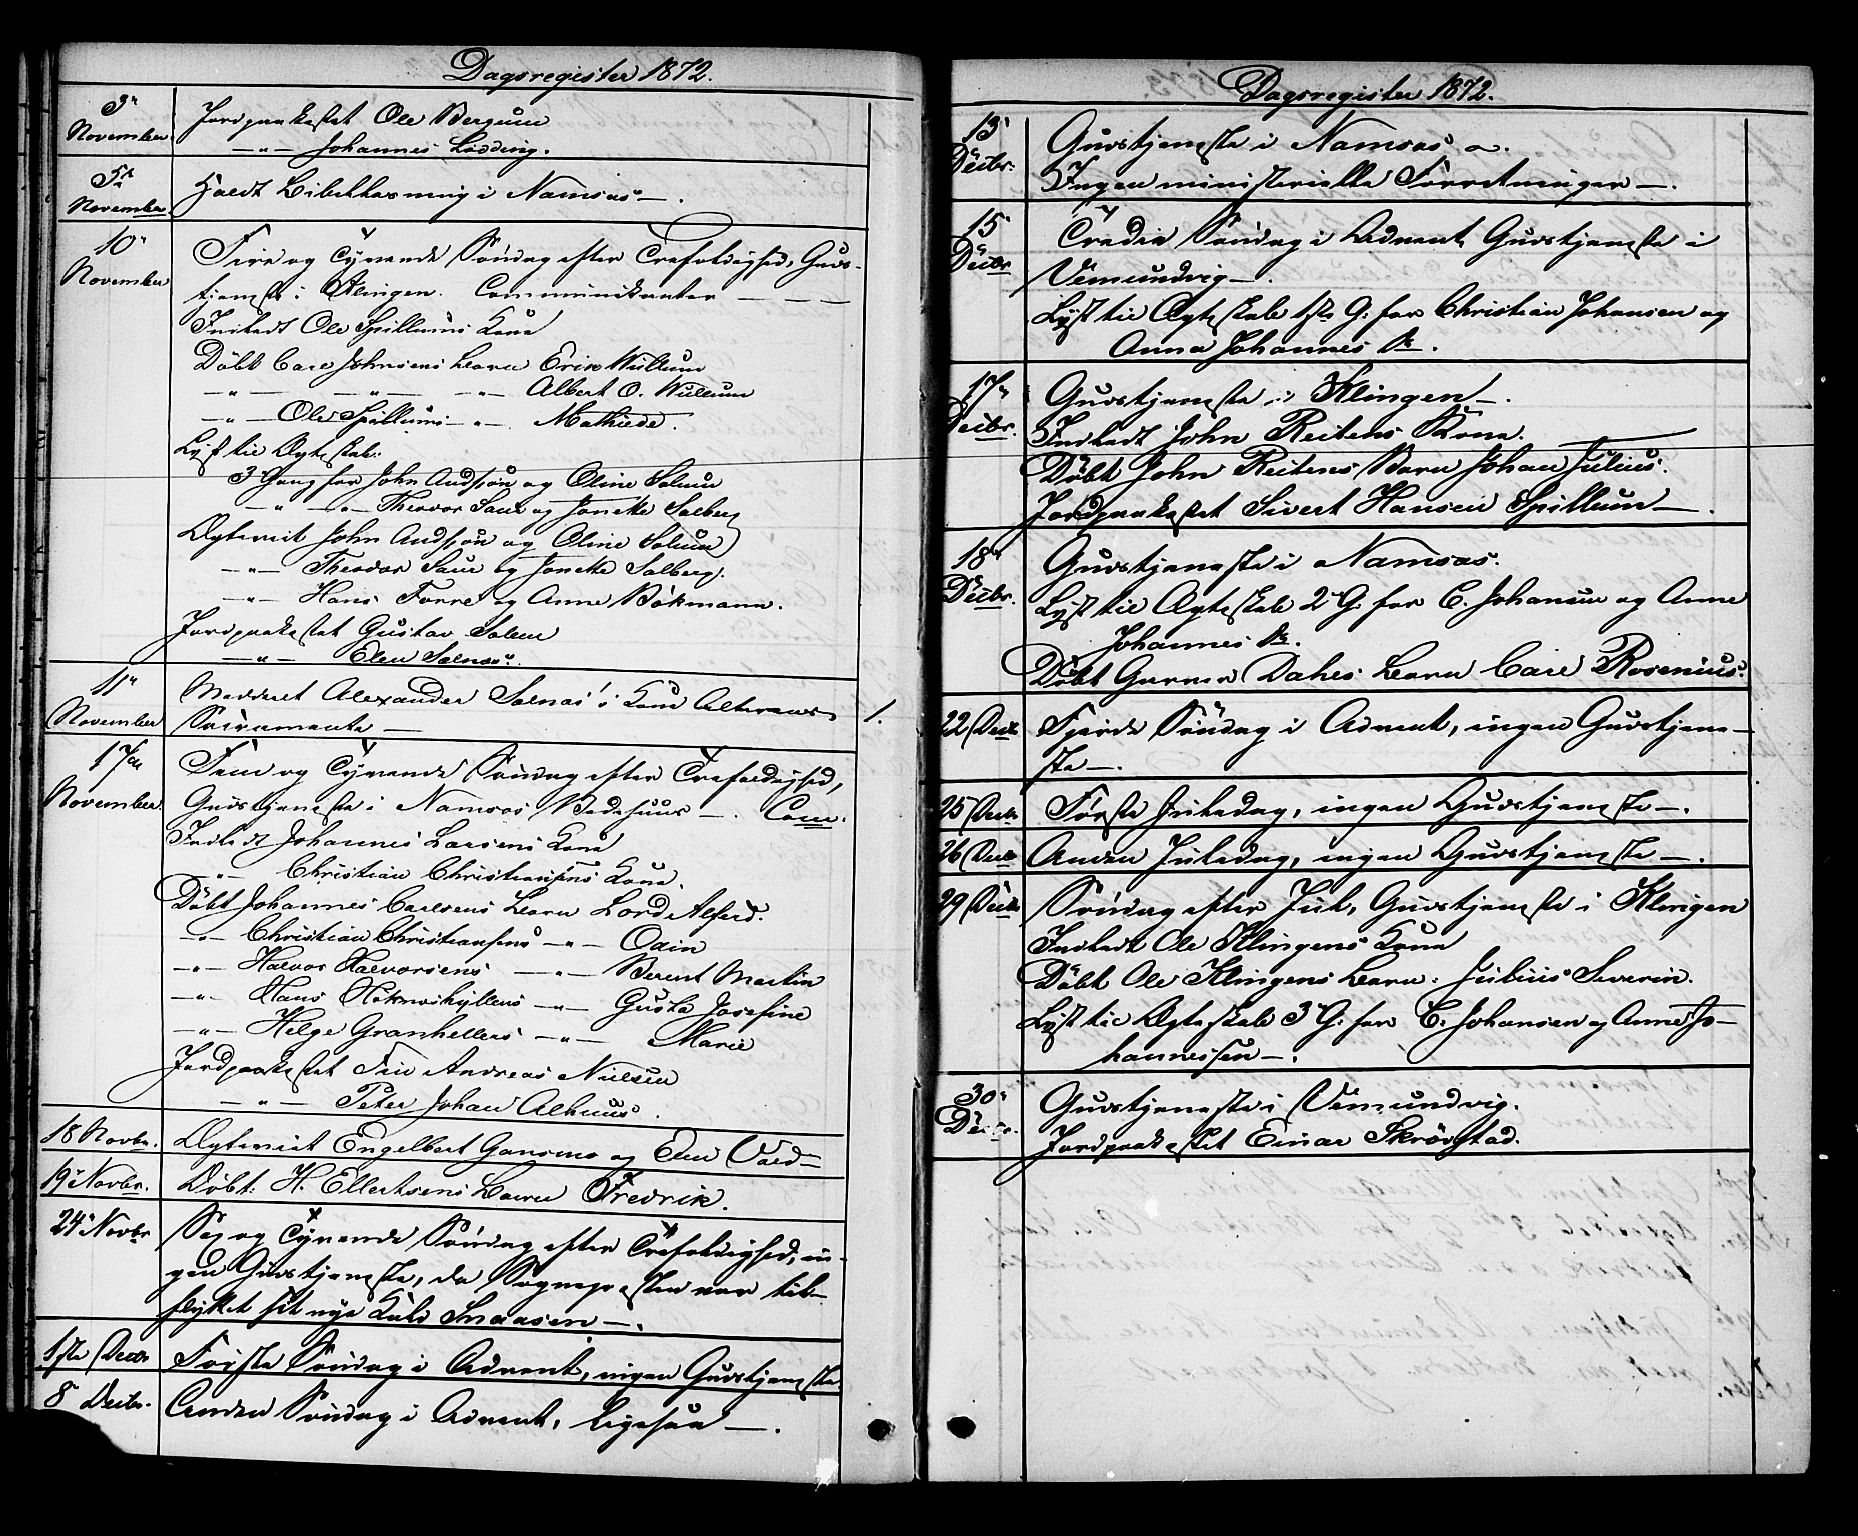 Dagsregister 1872.
3'
November
Jordpaakastet Ole Bergum
—"— Johannes Lödding.
5te
November
Holdt Bibellæsning i Namsos —.
10'
November
Fire og Tyvende Söndag efter Trefoldighed, Guds-
tjeneste i Klingen. Communikanter — — —
Indledt Ole Spillums Kone
Döbt Carl Johnsens Barn Erik Willum
—"— —"— —"— Albert O. Willum
—"— Ole Spillums —"— Mathilde.
Lyst til Ægteskab:
3' Gang for John Audsson og Oline Solum
—"— —"— Theodor Saur og Jonette Solberg
Ægteviet John Audsson og Oline Solum
—"— Theodor Saur og Jonette Solberg.
—"— Hans Forre og Anne Bökmann.
Jordpaakastet Gustav Solem
—"— Elen Selnæs.
11'
November
Meddelt Alexander Selnæs's Kone Alterens
Sacramente —
1.
17de
November
Fem og Tyvende Söndag efter Trefoldighed,
Gudstjeneste i Namsos Bedehuus —. Com.
Indledt Johannes Larsens Kone
—"— Christian Christiansens Kone.
Döbt Johannes Carlsens Barn Lord Alfred.
—"— Christian Christiansens —"— Odin
—"— Halvor Halvorsens —"— Berent Martin
—"— Hans Höknæshyllens —"— Gusta Josefine
—"— Helge Granhellers —"— Marie
Jordpaakastet Andreas Nielsen
—"— Peter Johan Alhuus.
18 Novbr.
Ægteviet Engelbert Gansmo og Elen
19' Novbr.
Döbt: H. Ellertsens Barn Fredrik.
24' Novbr
Sex og Tyvende Söndag efter Trefoldighed, in-
gen Gudstjeneste, da Sognepresten var til-
flyttet sit nye Kald Snaasen —.
1ste Decbr
Förste Söndag i Advent, ingen Gudstjeneste
8' Decbr.
Anden Söndag i Advent, ligesaa —.
Dagsregister 1872.
13'
Decbr.
Gudstjeneste i Namsos —.
Ingen ministerielle Forretninger —.
15'
Decbr
Tredie Söndag i Advent Gudstjeneste i
Vemundvig —.
Lyst til Ægteskab 1ste G. for Christian Johansen og
Anna Johannes Dr.
17'
Decbr.
Gudstjeneste i Klingen —.
Indledt John Reitens Kone.
Döbt John Reitens Barn Johan Julius.
Jordpaakastet Sivert Hansen Spillum —.
18'
Decbr.
Gudstjeneste i Namsos.
Lyst til Ægteskab 2' G. for C. Johansen og Anne
Johannes Dr.
Döbt Gunner Dahls Barn Carl Rosenius.
22 Decbr
Fjerde Söndag i Advent, ingen Gudstjene-
ste —.
25 Decbr
Förste Juledag, ingen Gudstjeneste —.
26 Decbr
Anden Juledag, ingen Gudstjeneste —.
29 Decbr
Söndag efter Jul, Gudstjeneste i Klingen
Indledt Ole Klingens Kone
Döbt Ole Klingens Barn: Julius Severin.
Lyst til Ægteskab 3' G. for C. Johansen og Anne Jo-
hannessen —.
30'
Decbr.
Gudstjeneste i Vemundvig.
Jordpaakastet Einar Skrövstad.